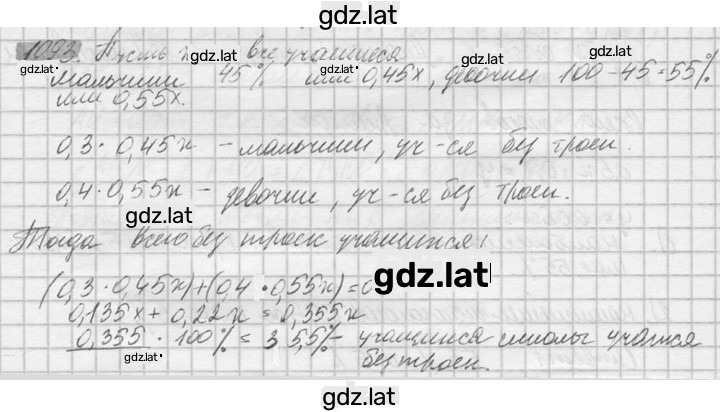 gdz.lat
1093. Пусть x все учащиеся
gdz.lat
gdz.lat
gdz.lat
мальчики 45% или 0,45x, девочки 100-45=55%
или 0,55x.
0,3 · 0,45x - мальчики, уч-ся без троек.
0,4 · 0,55x - девочки, уч-ся без троек.
gdz.lat
Тогда всего без троек учащихся:
(0,3 · 0,45x)+(0,4 · 0,55x)=0
gdz.lat
0,135x + 0,22x = 0,355x
gdz.lat
0,355 · 100% = 35,5% - учащихся школы учатся
gdz.lat
без троек.
gdz.lat